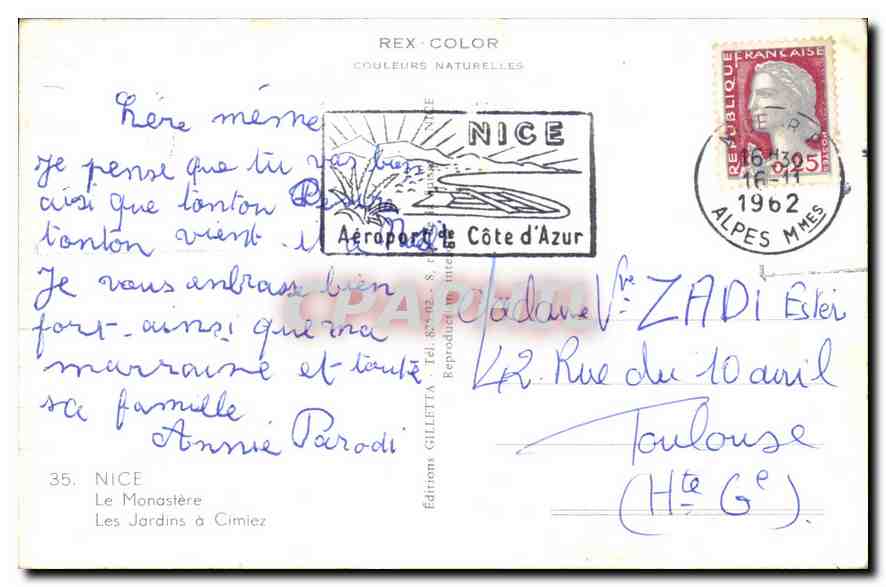 REX - COLOR
COULEURS NATURELLES
NICE
Aéroport de la Côte d'Azur
RÉPUBLIQUE FRANÇAISE
0,25
16 H30
16-11
1962
ALPES MMES
Chère mémé
Je pense que tu vas bien
aisi que tonton
tonton vient et
Je vous enbrasse bien
fort ainsi que ma
marraine et toute
sa famille
Annie Parodi
35. NICE
Le Monastère
Les Jardins à Cimiez
Éditions GILLETTA - Tél. 875-02 - 8, NICE
Reproduction inter
Madame Vve ZADI Ester
42. Rue du 10 avril
Toulouse
(Hte Ge).